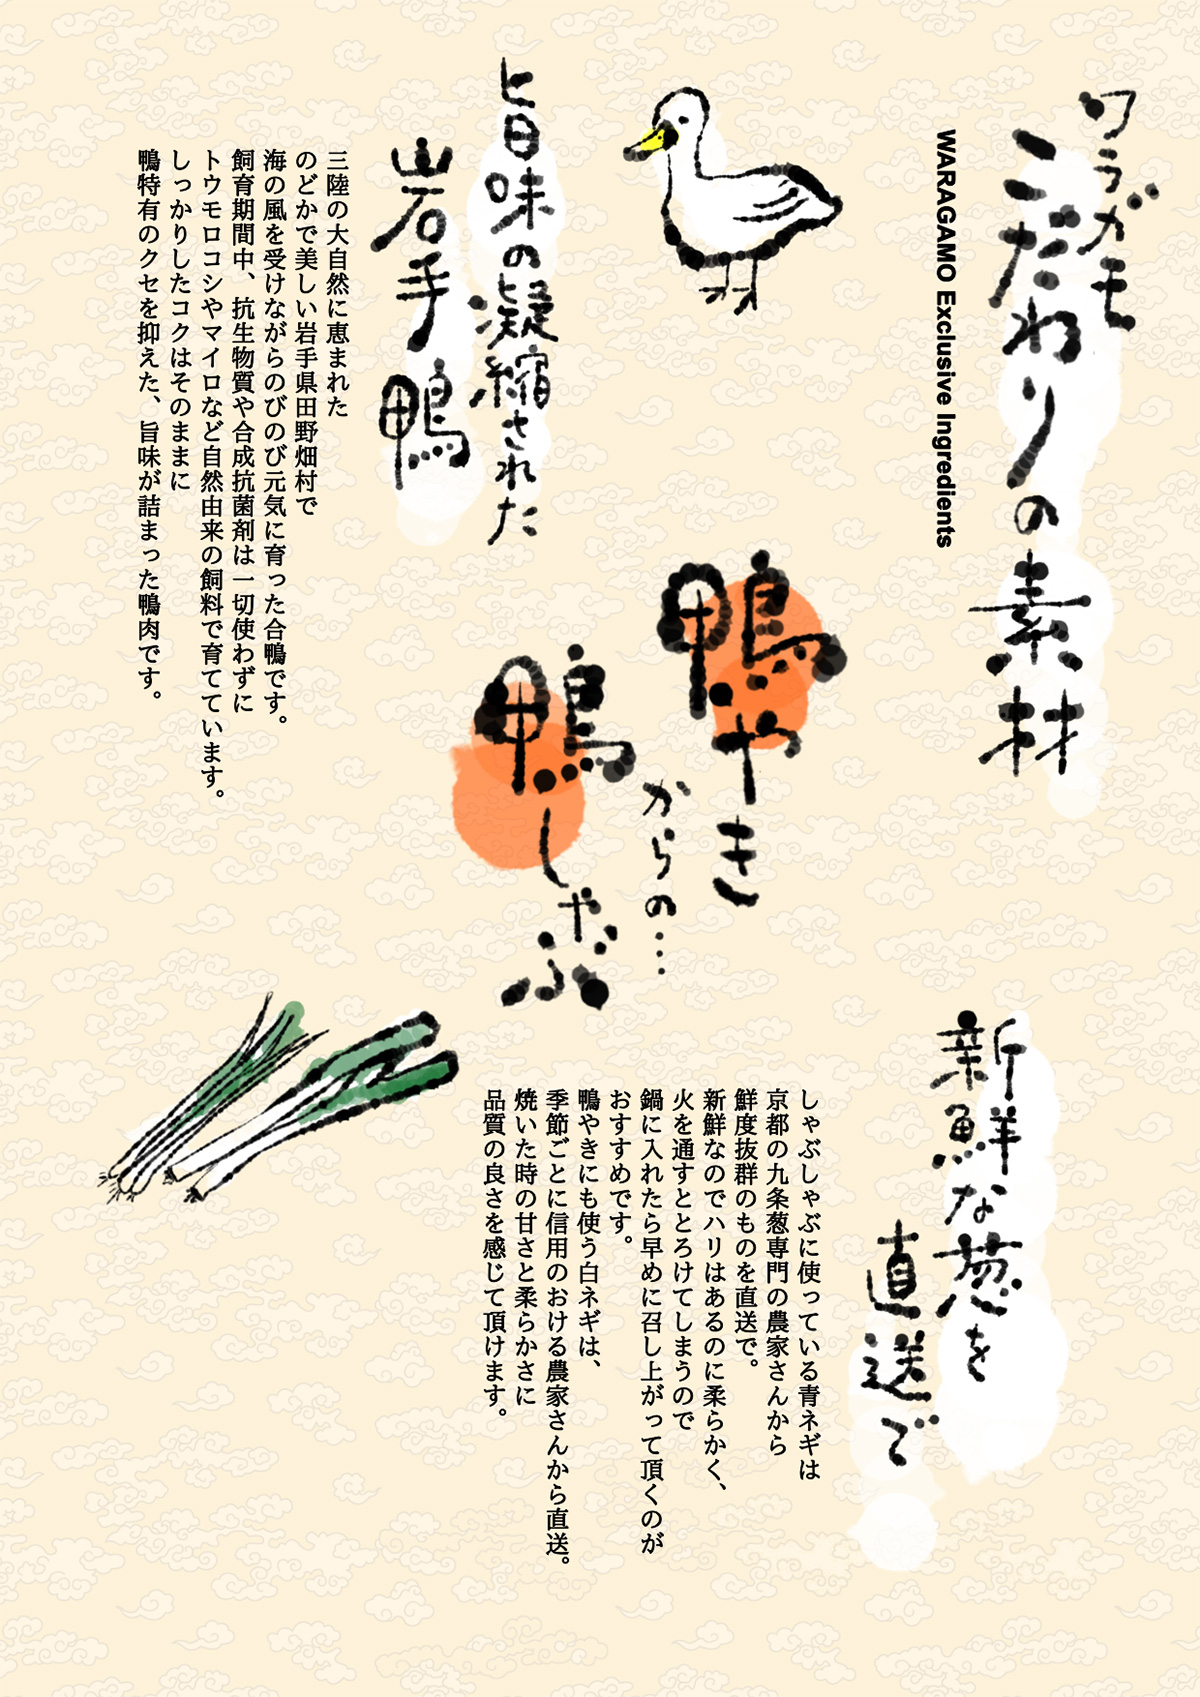 ワラガモ
こだわりの素材
WARAGAMO Exclusive Ingredients
旨味の凝縮された
岩手鴨
三陸の大自然に恵まれた
のどかで美しい岩手県田野畑村で
海の風を受けながらのびのび元気に育った合鴨です。
飼育期間中、抗生物質や合成抗菌剤は一切使わずに
トウモロコシやマイロなど自然由来の飼料で育てています。
しっかりしたコクはそのままに
鴨特有のクセを抑えた、旨味が詰まった鴨肉です。
鴨やき
からの…
鴨しゃぶ
新鮮な葱を
直送で
しゃぶしゃぶに使っている青ネギは
京都の九条葱専門の農家さんから
鮮度抜群のものを直送で。
新鮮なのでハリはあるのに柔らかく、
火を通すととろけてしまうので
鍋に入れたら早めに召し上がって頂くのが
おすすめです。
鴨やきにも使う白ネギは、
季節ごとに信用のおける農家さんから直送。
焼いた時の甘さと柔らかさに
品質の良さを感じて頂けます。